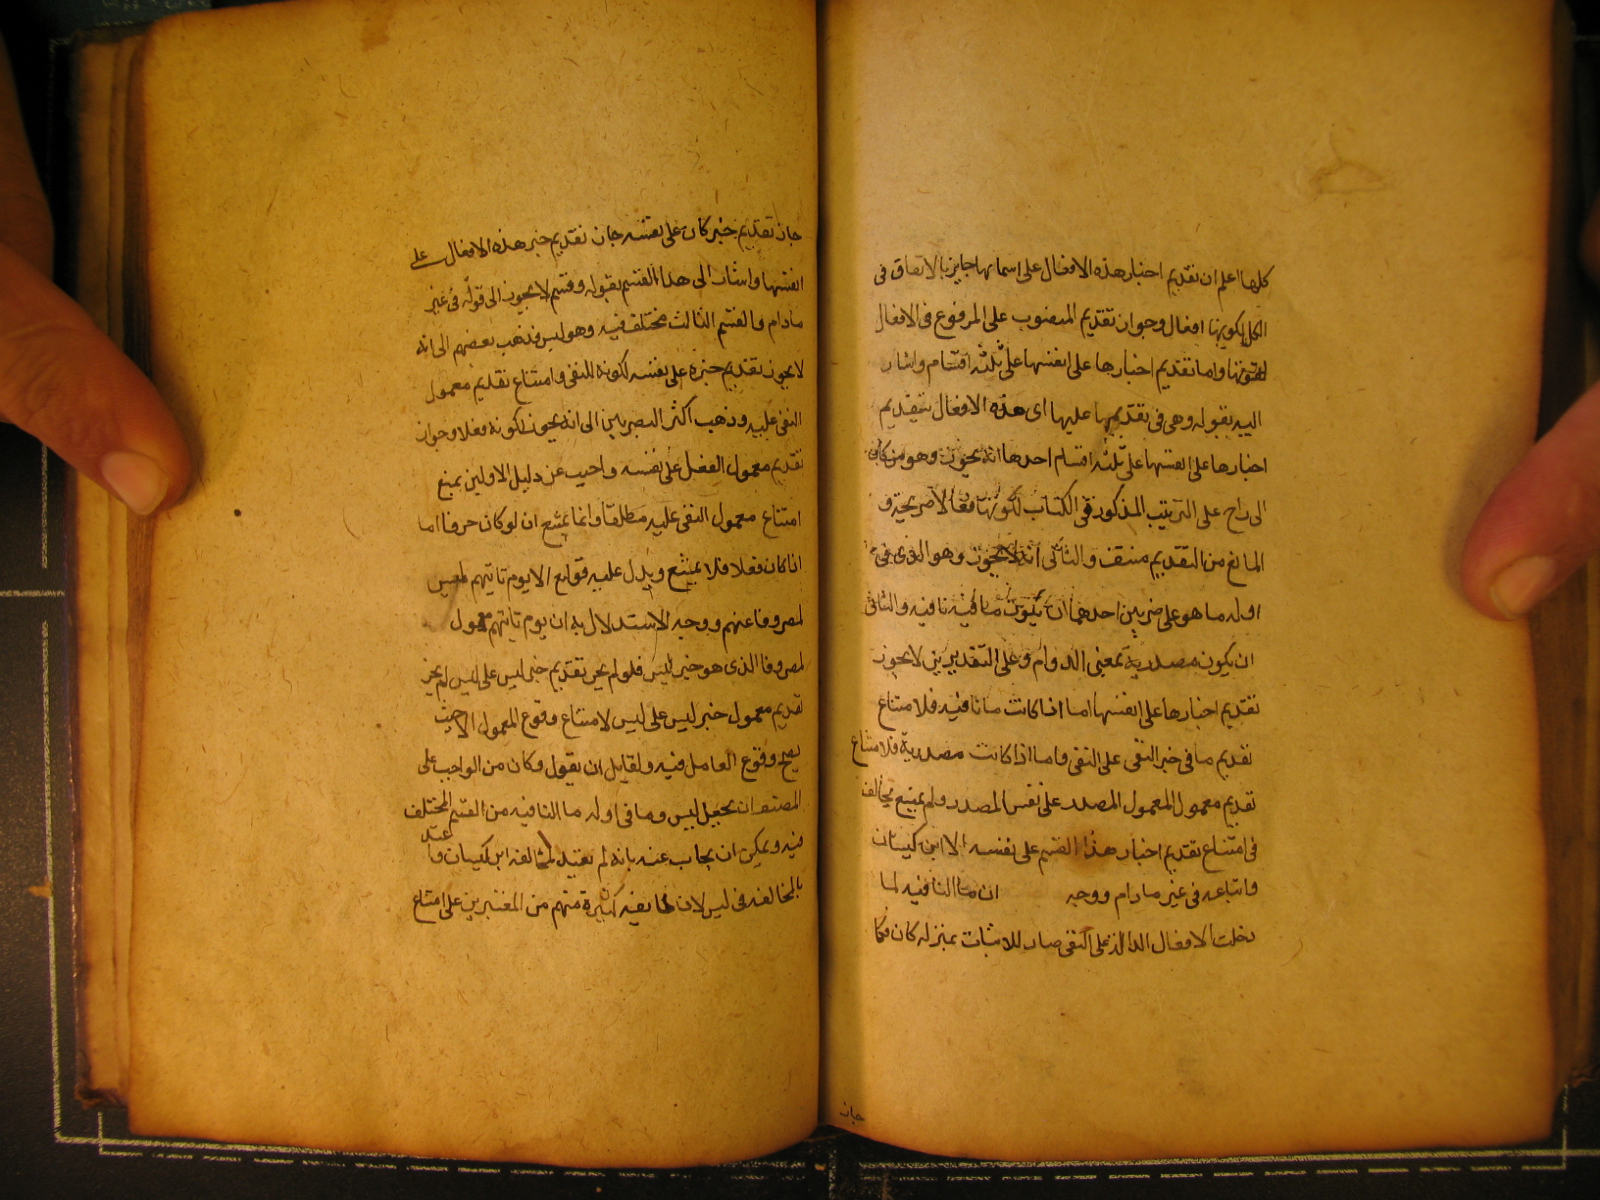 كلها اعلم ان تقديم اخبار هذه الافعال على اسمائها جايز بالاتفاق فى
الكل لكونها افعال وجواز تقديم المنصوب على المرفوع فى الافعال
لقوتها واما تقديم اخبارها على انفسها على ثلثة اقسام واشار
اليه بقوله وهى فى تقديمها عليها اى هذه الافعال بتقديم
اخبارها على انفسها على ثلثة اقسام احدها انه يجوز وهو من كان
الى راح على الترتيب المذكور فى الكتاب لكونها افعالا صريحة و
المانع من التقديم منتف والثانى انه لا يجوز وهو الذى فى
اوله ما هو على ضربين احدهما ان يكون ما فيه نافيه والثانى
ان يكون مصدرية بمعنى الدوام وعلى التقديرين لا يجوز
تقديم اخبارها على انفسها اما اذا كانت ما نافيه فلامتناع
تقديم ما فى خبر النفى على النفى واما اذا كانت مصدرية فلامتناع
تقديم معمول المعمول المصدر على نفس المصدر ولم يمنع مخالف
فى امتناع تقديم اخبار هذا القسم على نفسه الا ابن كيسان
واتباعه فى غير مادام ووجه ان ما النافيه لما
دخلت الافعال الدالة على النفى صار للاثبات بمنزله كان فكما
جاز
جاز تقديم خبر كان على نفسه جاز تقديم خبر هذه الافعال على
انفسها واشار الى هذا القسم بقوله وقسم لا يجوز الى قوله فى غير
مادام والقسم الثالث مختلف فيه وهو ليس فذهب بعضهم الى انه
لا يجوز تقديم خبره على نفسه لكونه للنفى وامتناع تقديم معمول
النفى عليه وذهب اكثر البصريين الى انه يجوز لكونه فعلا وجواز
تقديم معمول الفعل على نفسه واجيب عن دليل الاولين بمنع
امتناع معمول النفى عليه مطلقا وانما يمتنع ان لو كان حرفا اما
اذا كان فعلا فلا يمتنع ويدل عليه قوله الا يوم تاتيهم ليس
مصروفا عنهم ووجه الاستدلال به ان يوم تاتيهم معمول
لمصروفا الذى هو خبر ليس فلو لم يجز تقديم خبر ليس على ليس لم يجز
تقديم معمول خبر ليس على ليس لامتناع وقوع المعمول الا حيث
يصح وقوع العامل فيه ولقايل ان يقول وكان من الواجب على
المصنف ان يجعل ليس وما فى اوله ما النافيه من القسم المختلف
فيه ويمكن ان يجاب عنه بانه لم يعتد لمخالفة ابن كيسان واعتد
بالمخالفه فى ليس لان طايفه كثيرة منهم من المعتبرين على امتناع